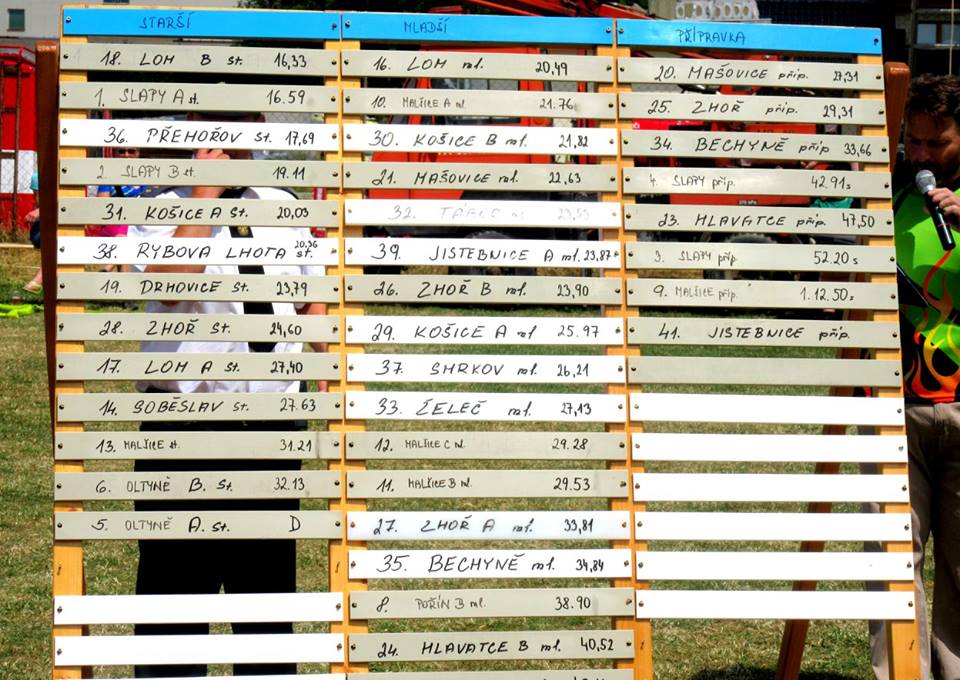 STARŠÍ
18. LOM B st. 16,33
1. SLAPY A st. 16.59
36. PŘEHOŘOV st. 17,69
2. SLAPY B st. 19.11
31. KOŠICE A st. 20,03
38. RYBOVA LHOTA st. 20,36
19. DRHOVICE st. 23,79
28. ZHOŘ st. 24,60
17. LOM A st. 27,40
14. SOBĚSLAV st. 27.63
13. MALŠICE st. 31.21
6. OLTYNĚ B. st. 32.13
5. OLTYNĚ A. st. D
MLADŠÍ
16. LOM ml. 20,49
10. MALŠICE A ml. 21.76
30. KOŠICE B ml. 21,82
21. MAŠOVICE ml. 22,63
32.
39. JISTEBNICE A ml. 23,87
26. ZHOŘ B ml. 23,90
29. KOŠICE A ml 25.97
37. SMRKOV ml. 26,21
33. ŽELEČ ml. 27,13
12. MALŠICE C ml. 29.28
11. MALŠICE B ml. 29.53
27. ZHOŘ A ml. 33,81
35. BECHYNĚ ml. 34,84
8. POŘÍN B ml. 38.90
24. HLAVATCE B ml. 40,52
PŘÍPRAVKA
20. MAŠOVICE příp. 27,31
25. ZHOŘ příp. 29,31
34. BECHYNĚ příp 33,66
4. SLAPY příp. 42.91s
23. HLAVATCE příp. 47,50
3. SLAPY příp. 52.20s
9. MALŠICE příp. 1.12.50s
41. JISTEBNICE příp.